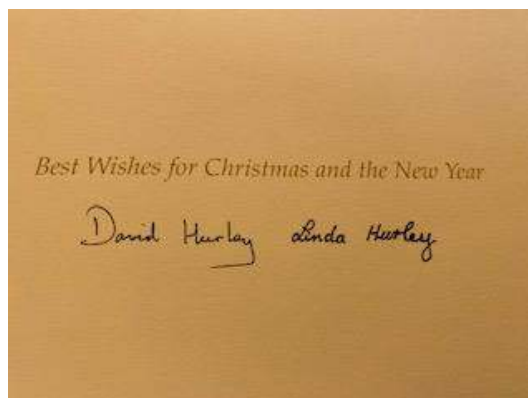 Best Wishes for Christmas and the New Year
David Hurley Linda Hurley